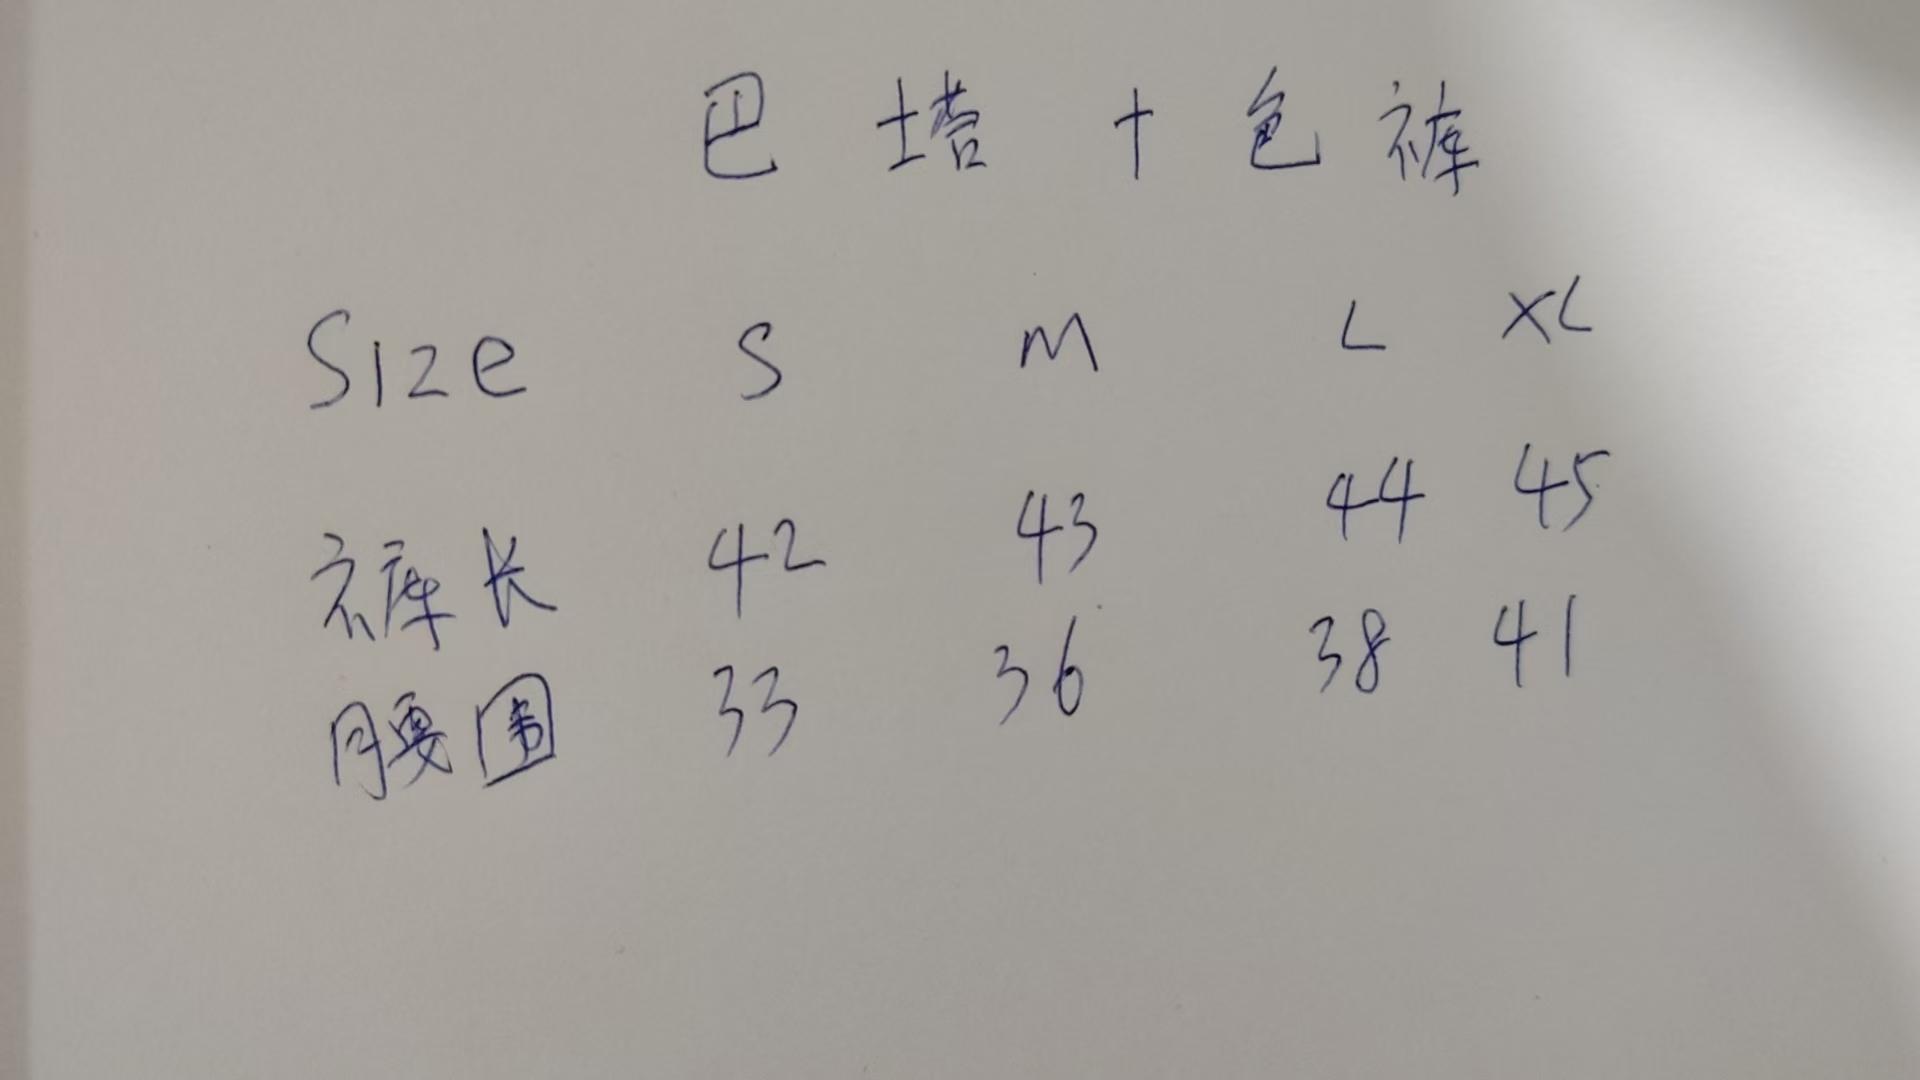 巴塔十色裤
Size S M L XL
裤长 42 43 44 45
腰围 33 36 38 41